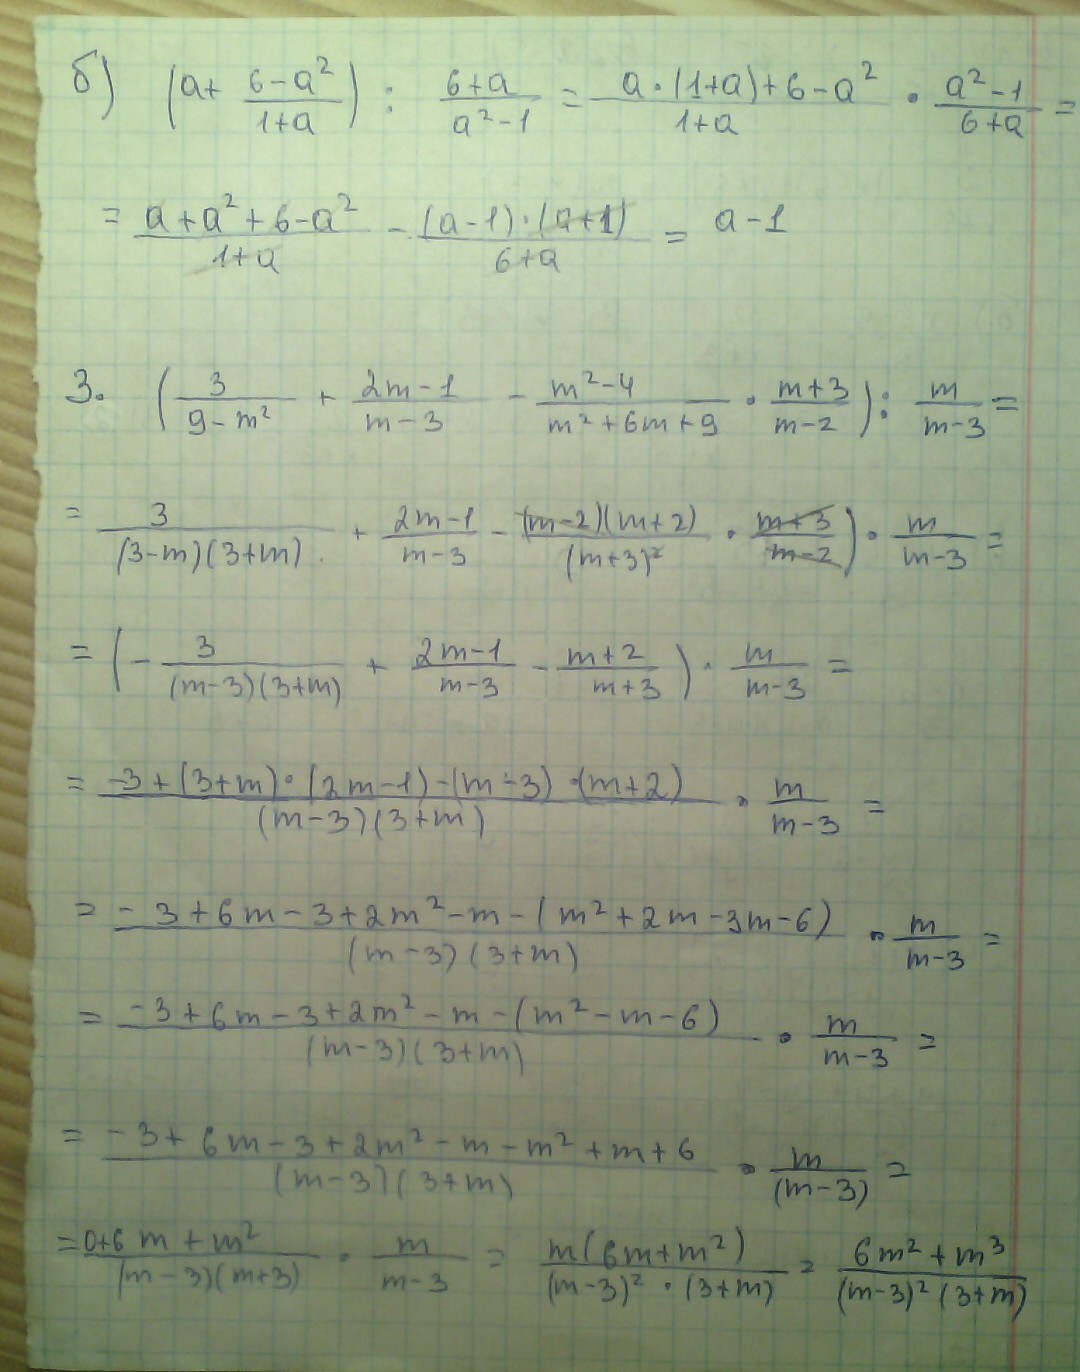 б) (a + (6-a²)/(1+a)) : (6+a)/(a²-1) = (a·(1+a)+6-a²)/(1+a) · (a²-1)/(6+a) =
= (a+a²+6-a²)/(1+a) - ((a-1)·(a+1))/(6+a) = a-1
3. (3/(9-m²) + (2m-1)/(m-3) - (m²-4)/(m²+6m+9) · (m+3)/(m-2)) : m/(m-3) =
= 3/((3-m)(3+m)) + (2m-1)/(m-3) - ((m-2)(m+2))/(m+3)² · (m+3)/(m-2)) · m/(m-3) =
= (- 3/((m-3)(3+m)) + (2m-1)/(m-3) - (m+2)/(m+3)) · m/(m-3) =
= (-3+(3+m)·(2m-1)-(m-3)·(m+2))/((m-3)(3+m)) · m/(m-3) =
= (-3+6m-3+2m²-m-(m²+2m-3m-6))/((m-3)(3+m)) · m/(m-3) =
= (-3+6m-3+2m²-m-(m²-m-6))/((m-3)(3+m)) · m/(m-3) =
= (-3+6m-3+2m²-m-m²+m+6)/((m-3)(3+m)) · m/(m-3) =
= (0+6m+m²)/((m-3)(m+3)) · m/(m-3) = m(6m+m²)/((m-3)²·(3+m)) = (6m²+m³)/((m-3)²(3+m))